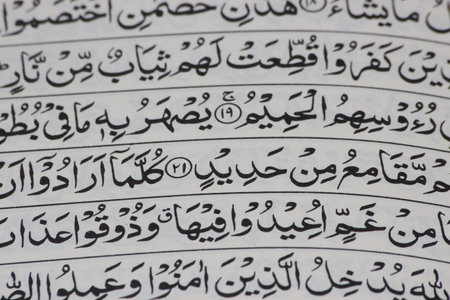 مَا يَشَآءُ ۝١٨ هٰذٰنِ خَصْمٰنِ اخْتَصَمُوْا
كَفَرُوْا قُطِّعَتْ لَهُمْ ثِيَابٌ مِّنْ نَّارٍ
رُءُوْسِهِمُ الْحَمِيْمُ ۝١٩ۚ يُصْهَرُ بِهٖ مَا فِيْ
مَّقَامِعُ مِنْ حَدِيْدٍ ۝٢١ كُلَّمَاۤ اَرَادُوْۤا اَنْ
مِنْ غَمٍّ اُعِيْدُوْا فِيْهَا ۗ وَذُوْقُوْا عَذَابَ
يُدْخِلُ الَّذِيْنَ اٰمَنُوْا وَعَمِلُوا